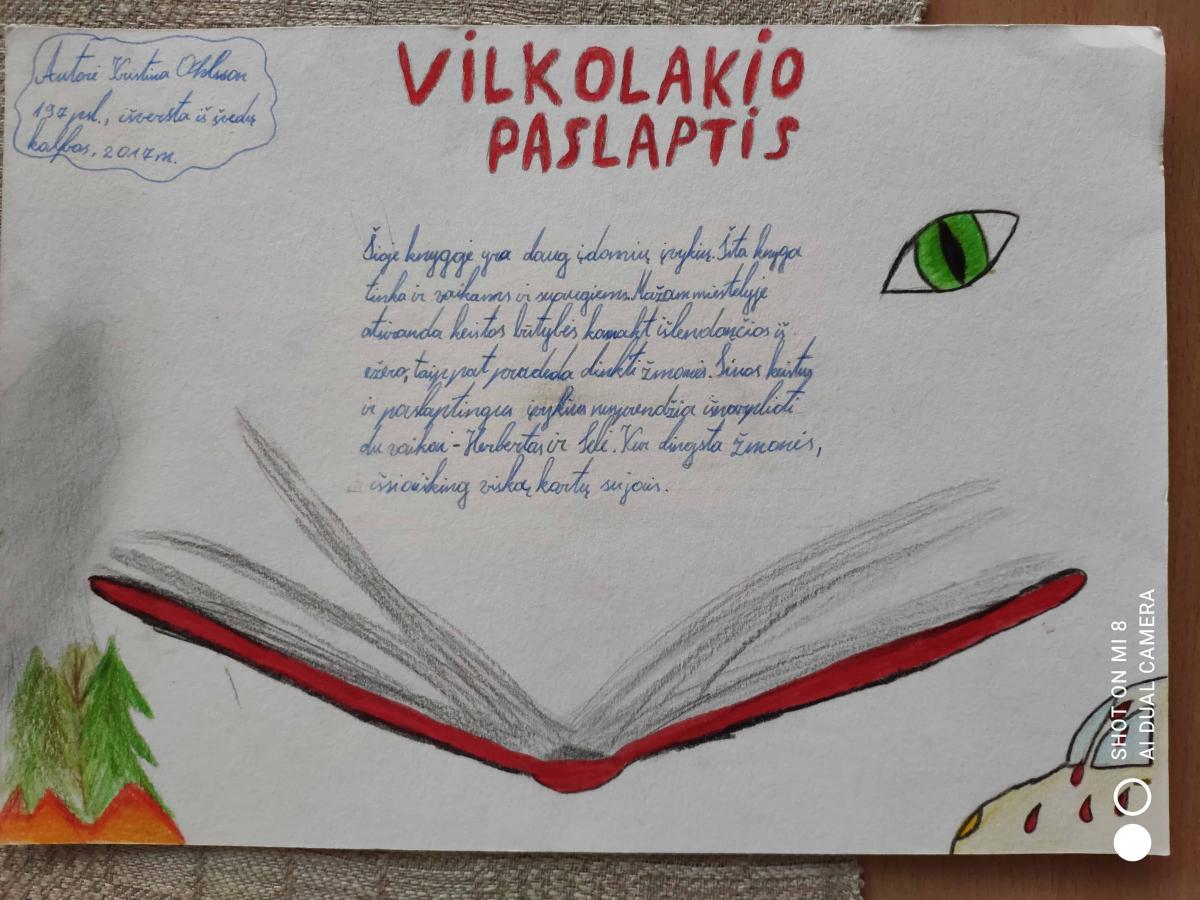 Autorė Kristina Ohlsson
197 psl., išversta iš švedų
kalbos, 2017 m.
VILKOLAKIO
PASLAPTIS
Šioje knygoje yra daug įdomių įvykių. Šita knyga
tinka ir vaikams ir suaugiems. Mažam miestelyje
atsiranda keistos būtybės kamakt išlendančios iš
ežero, taip pat pradeda dinkti žmonės. Šiuos keistus
ir paslaptingus įvykius nusprendžia išnarplioti
du vaikai - Herbertas ir Selė. Kur dingsta žmonės,
išsiaiškink viską kartu su jais.
SHOT ON MI 8
AI DUAL CAMERA